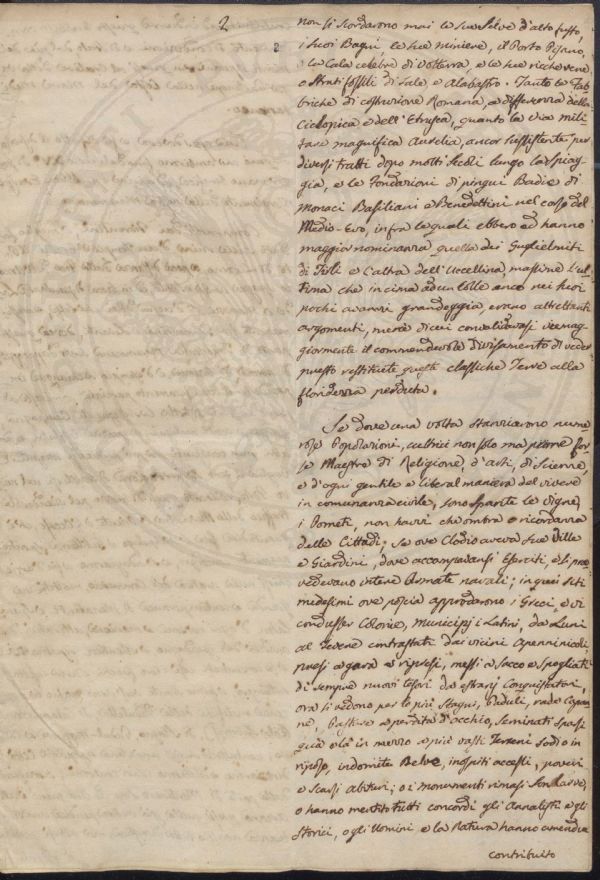 2
2
non si scordarono mai le sue Selve d'alto fusto,
i suoi Bagni, le sue miniere, il Porto Pisano,
la Cala celebre di Volterra, e le sue ricche vene,
o Strati fossili di Sale, e Alabastro. Tante le Fab-
briche di costruzione Romana, a differenza della
Ciclopica e dell'Etrusca, quanto la via mili-
tare magnifica Aurelia, ancor sussistente per
diversi tratti dopo molti secoli lungo la spiag-
gia, e le Fondazioni di pingui Badie di
Monaci Basiliani e Benedettini nel corso del
Medio-Evo, infra le quali ebbero ed hanno
maggior nominanza quella dei Guglielmiti
di e l'altra dell'Uccellina, massime l'ul-
tima che in cima ad un Colle anco nei suoi
pochi avanzi grandeggia, erano altrettanti
argomenti, mercè di cui convalidavasi viemag-
giormente il commendevole divisamento di veder
presto restituite queste classiche Terre alla
floridezza perduta.
Se dove una volta stanziarono nume
rose Popolazioni, cultrici non solo ma pure for-
se Maestre di Religione, d'arti, di Scienze,
e d'ogni gentile e liberal maniera del vivere
in comunanza civile, sono sparite le vigne,
i Pometi, non havvi che ombra o ricordanza
delle Cittadi; se ove Clodio aveva sue Ville
e Giardini, dove accampavansi Eserciti, e si prov-
vedevano intere Armate navali; in quei siti
medesimi ove poscia approdarono i Greci, e vi
condusser Colonie, Municipj i Latini, da Luni
al Tevere contrastati dai vicini Apenninicoli,
presi a gara e ripresi, messi a Sacco e Spogliati
di sempre nuovi tesori da estranj Conquistatori,
ora si vedono per lo più Stagni, Paduli, rade Capan-
ne, Pasture a perdita d'occhio, seminati sparsi
quà e là in mezzo a più vasti Terreni sodi o in
riposo, indomite Belve, inospiti accessi, poveri
e scarsi abituri; o i monumenti rimasi son larve,
o hanno mentito tutti concordi gli Annalisti e gli
Storici, o gli Uomini e la Natura hanno amendue
contribuito